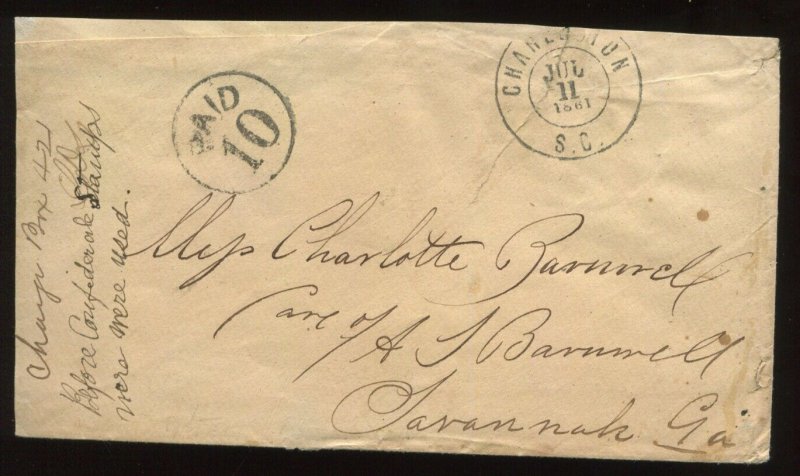 PAID
10
CHARLESTON
JUL
11
1861
S.C.
Miss Charlotte Barnwell
Care of A S Barnwell
Savannah Ga
Charge Box 421
Before Confederate Stamps
were were used.